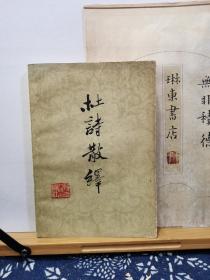 杜詩散繹
琳東書店
無非積德